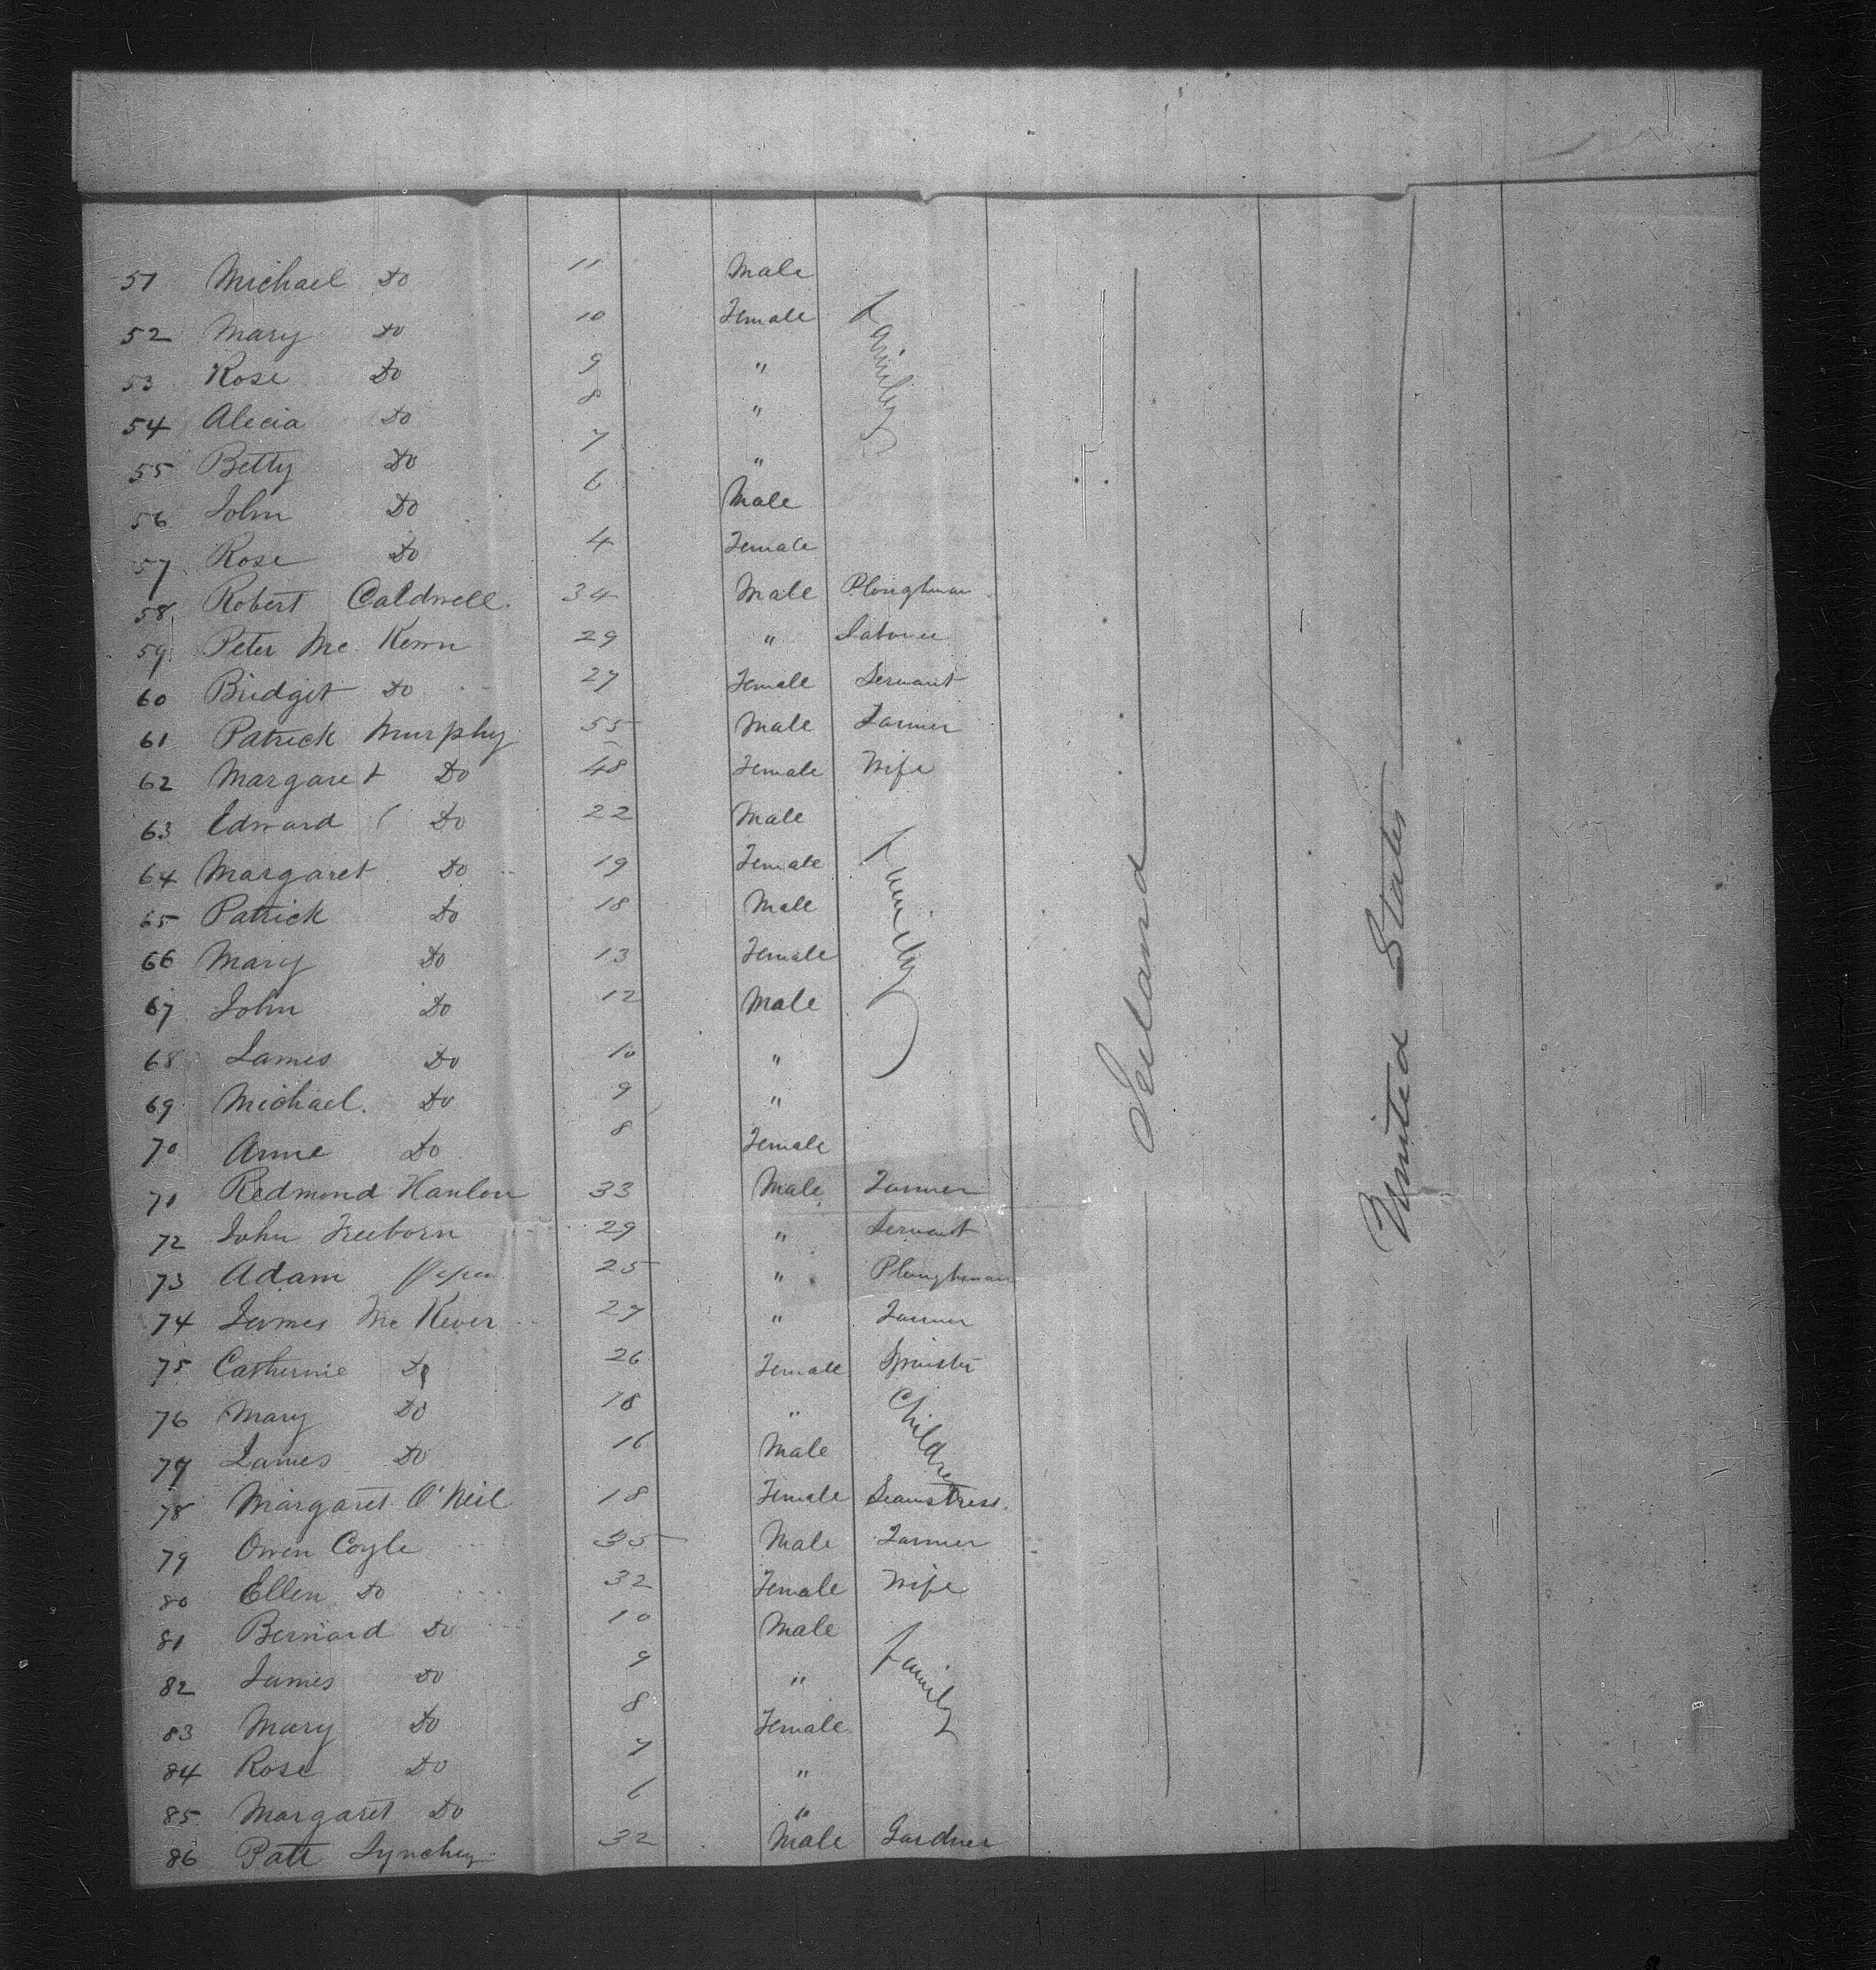 51 Michael Do 11 Male
52 Mary Do 10 Female
53 Rose Do 9 "
54 Alecia Do 8 "
55 Betty Do 7 "
56 John Do 6 Male
57 Rose Do 4 Female
Family
58 Robert Caldwell 34 Male Ploughman
59 Peter Mc Kern 29 " Laborer
60 Bridget Do 27 Female Servant
61 Patrick Murphy 55 Male Farmer
62 Margaret Do 48 Female Wife
63 Edward Do 22 Male
64 Margaret Do 19 Female
65 Patrick Do 18 Male
66 Mary Do 13 Female
67 John Do 12 Male
68 James Do 10 "
69 Michael Do 9 "
70 Anne Do 8 Female
Family
71 Redmond Hanlon 33 Male Farmer
72 John Freeborn 29 " Servant
73 Adam 25 " Ploughman
74 James Mc Kever 27 " Farmer
75 Catherine Do 26 Female Spinster
76 Mary Do 18 "
77 James Do 16 Male
Children
78 Margaret O'Neil 18 Female Seamstress.
79 Owen Coyle 35 Male Farmer
80 Ellen Do 32 Female Wife
81 Bernard Do 10 Male
82 James Do 9 "
83 Mary Do 8 Female
84 Rose Do 7 "
85 Margaret Do 6 "
Family
86 Patt Lynchey 32 Male Gardner
Ireland
United States